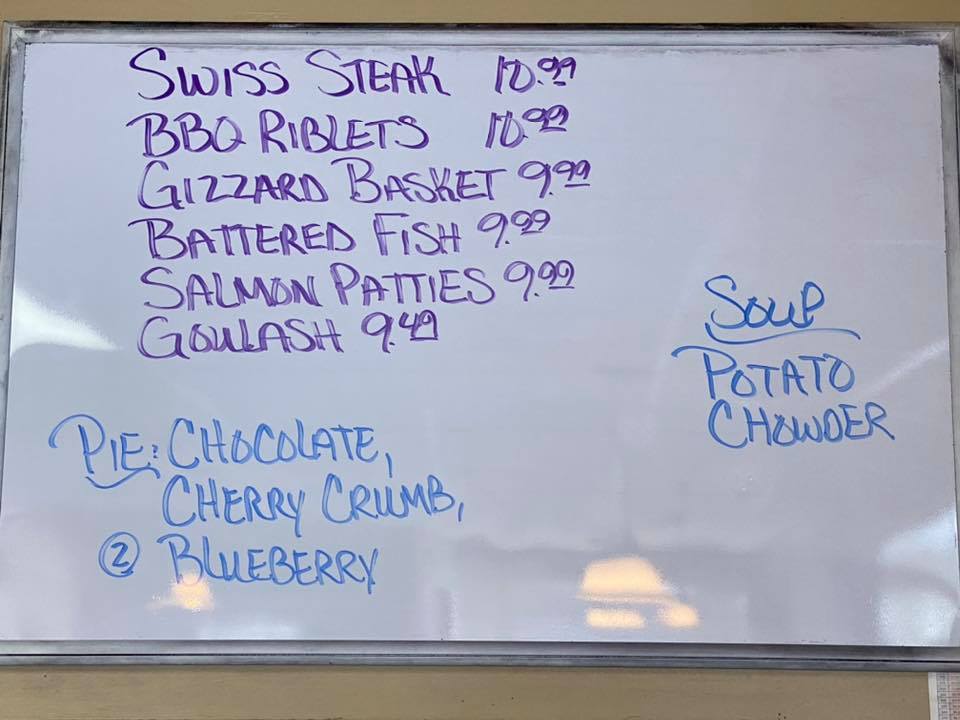 SWISS STEAK 10.99
BBQ RIBLETS 10.99
GIZZARD BASKET 9.99
BATTERED FISH 9.99
SALMON PATTIES 9.99
GOULASH 9.49
SOUP
POTATO
CHOWDER
PIE: CHOCOLATE,
CHERRY CRUMB,
② BLUEBERRY